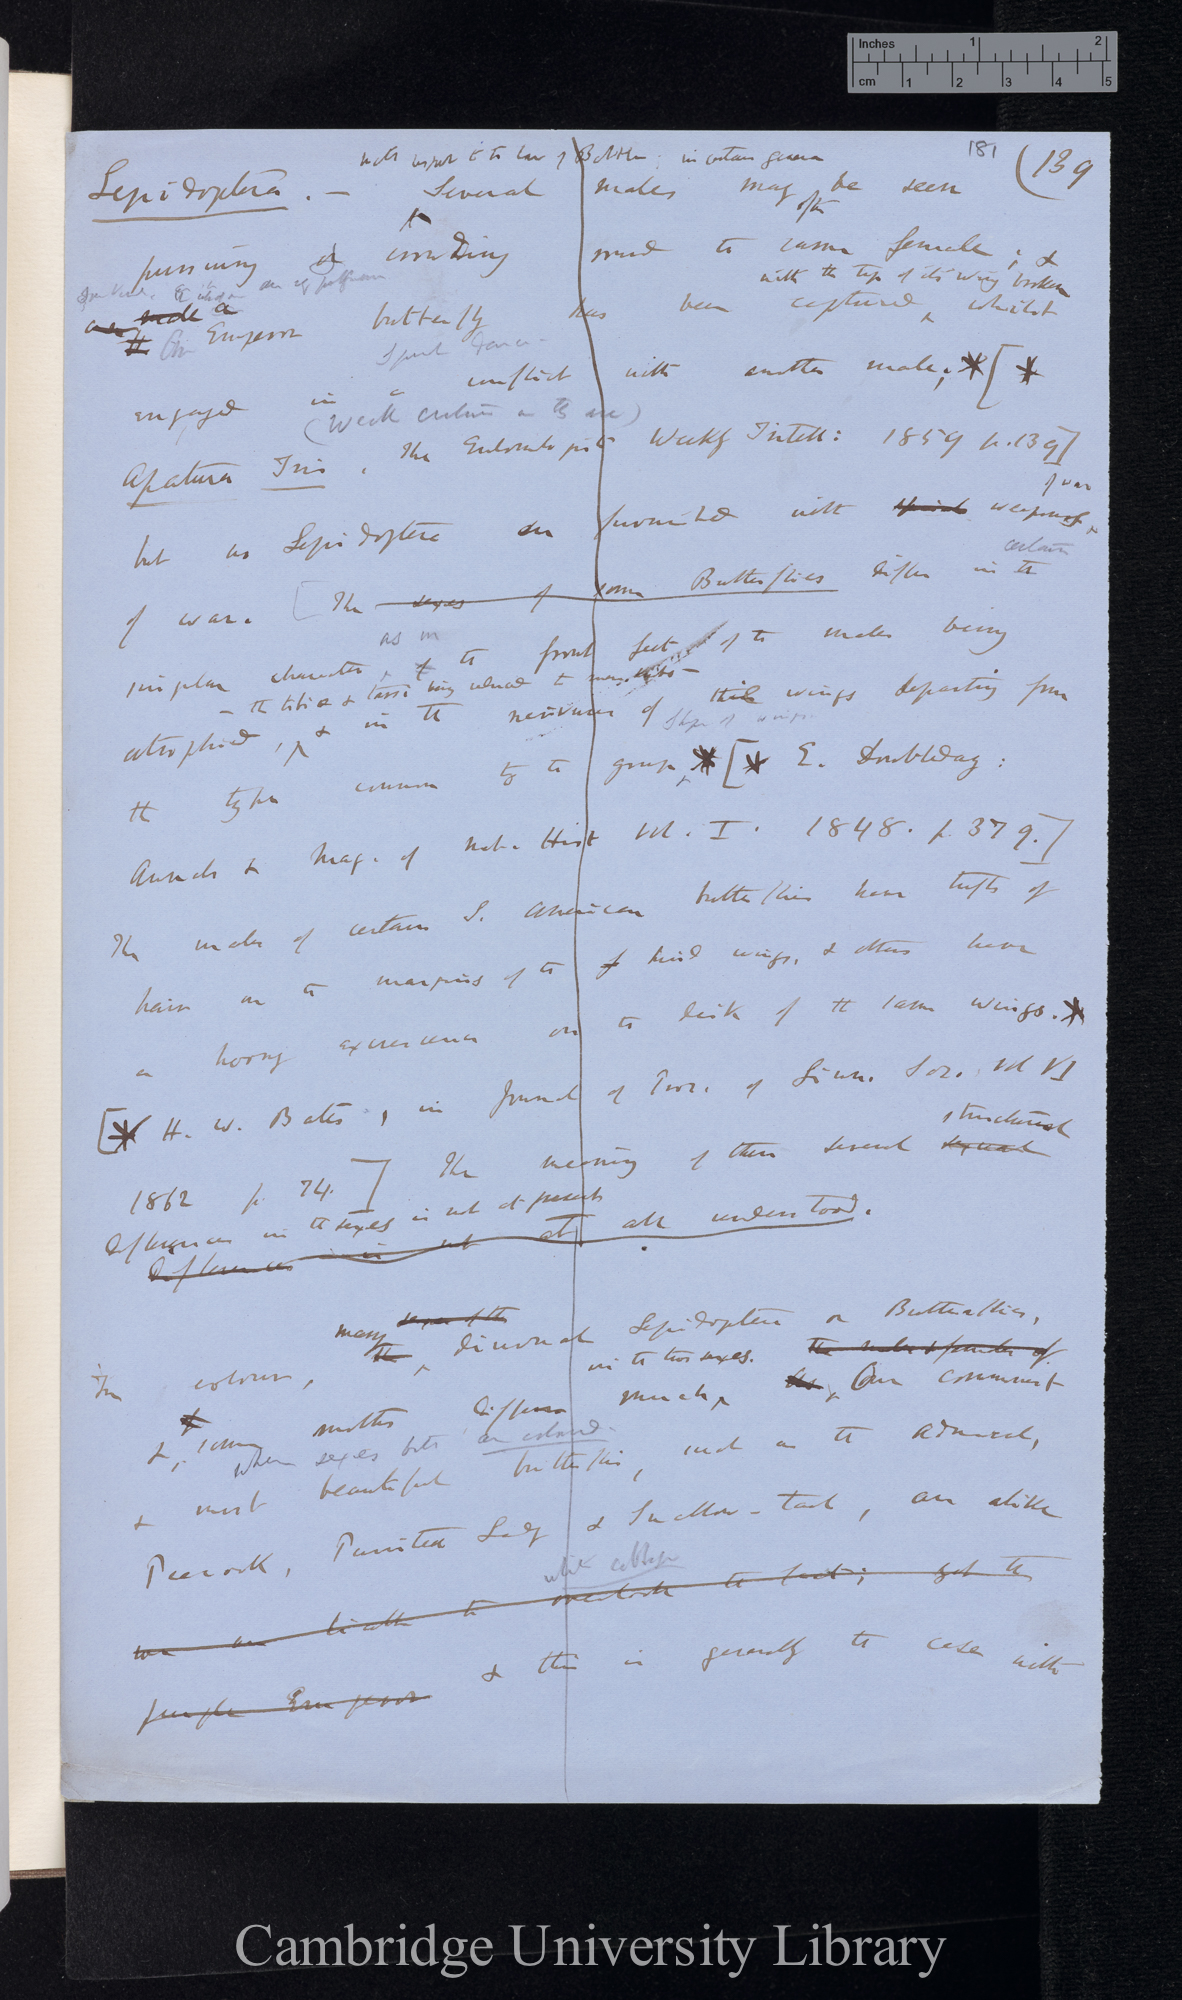 Inches 1 2
cm 1 2 3 4 5
181 (139
with respect to the law of Battle: in certain genera
Lepidoptera. — Several males may often be seen
pursuing & crowding round the same female; &
with the tips of its wings broken
male a
Emperor butterfly has been captured, whilst
engaged in a conflict with another male; * [*
Apatura Iris, The Entomologist's Weekly Intell: 1859 p. 139]
of war
but no Lepidoptera are furnished with special weapons
certain
of war. [The sexes of some Butterflies differ in the
as in
singular character, of the front feet of the males being
— the tibiæ & tarsi being reduced to mere knobs —
atrophied, & in the nervures of their wings departing from
shape of wings
the type common to the group * [* E. Doubleday:
Annals & Mag. of Nat. Hist Vol. I. 1848. p. 379.]
The males of certain S. American butterflies have tufts of
hair on the margins of the hind wings, & others have
a horny excrescence on the disk of the same wings. *
[* H. W. Bates, in Journal of Proc. of Linn. Soc. Vol VI
structural
1862 p. 74.] The meaning of these several sexual
differences in the sexes is not at present
differences is not at all understood.
many sexes of the
In colour, the diurnal Lepidoptera or Butterflies,
in the two sexes. the males & females of
& some moths differ much, As, Our commonest
when sexes both are coloured
& most beautiful butterflies, such as the Admiral,
Peacock, Painted Lady & Swallow-tail, are alike
white cabbage
we are liable to overlook the fact; yet the
purple Emperor & this is generally the case with
Cambridge University Library